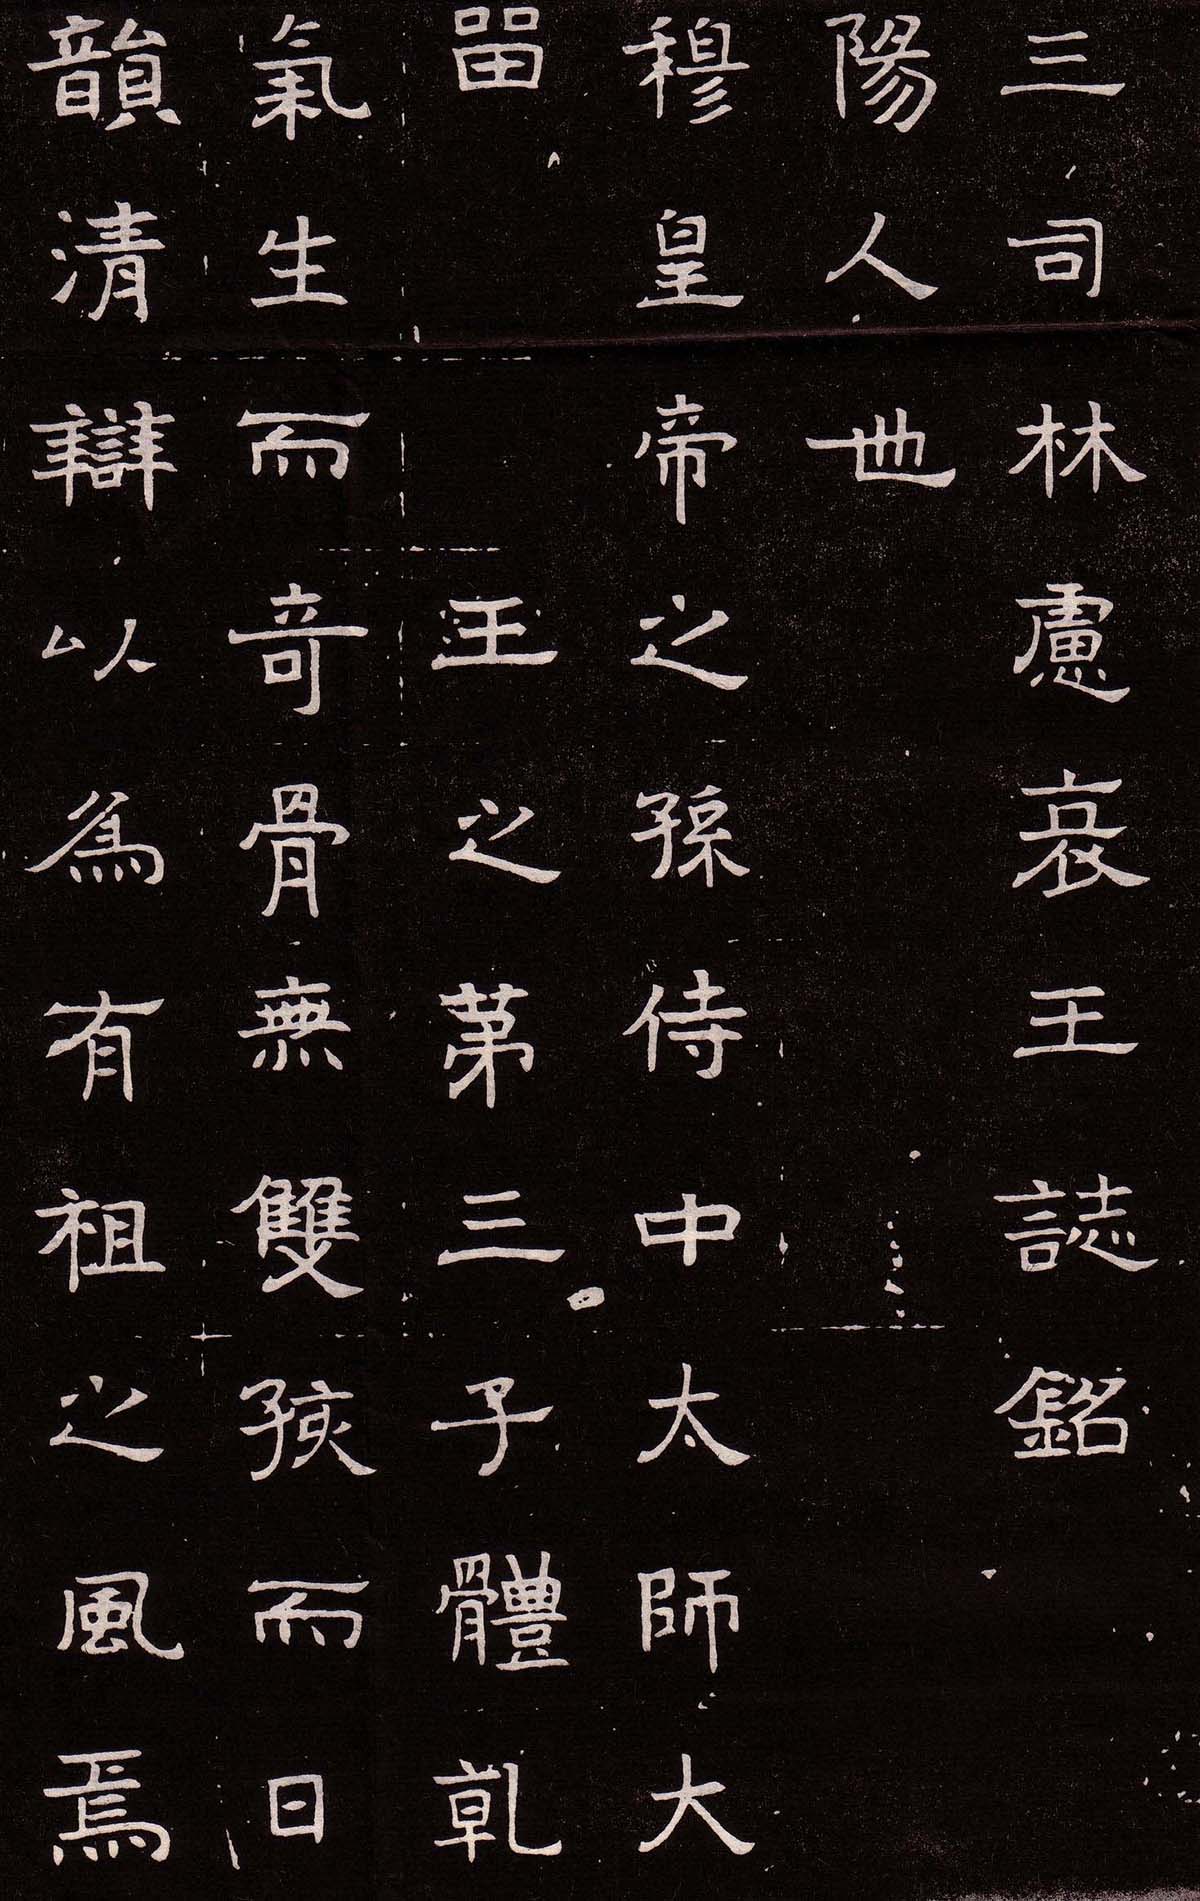 三司林慮哀王誌銘
陽人也
穆皇帝之孫侍中太師大
王之第三子體乹
氣生而奇骨無雙孩而日
韻清辯以為有祖之風焉